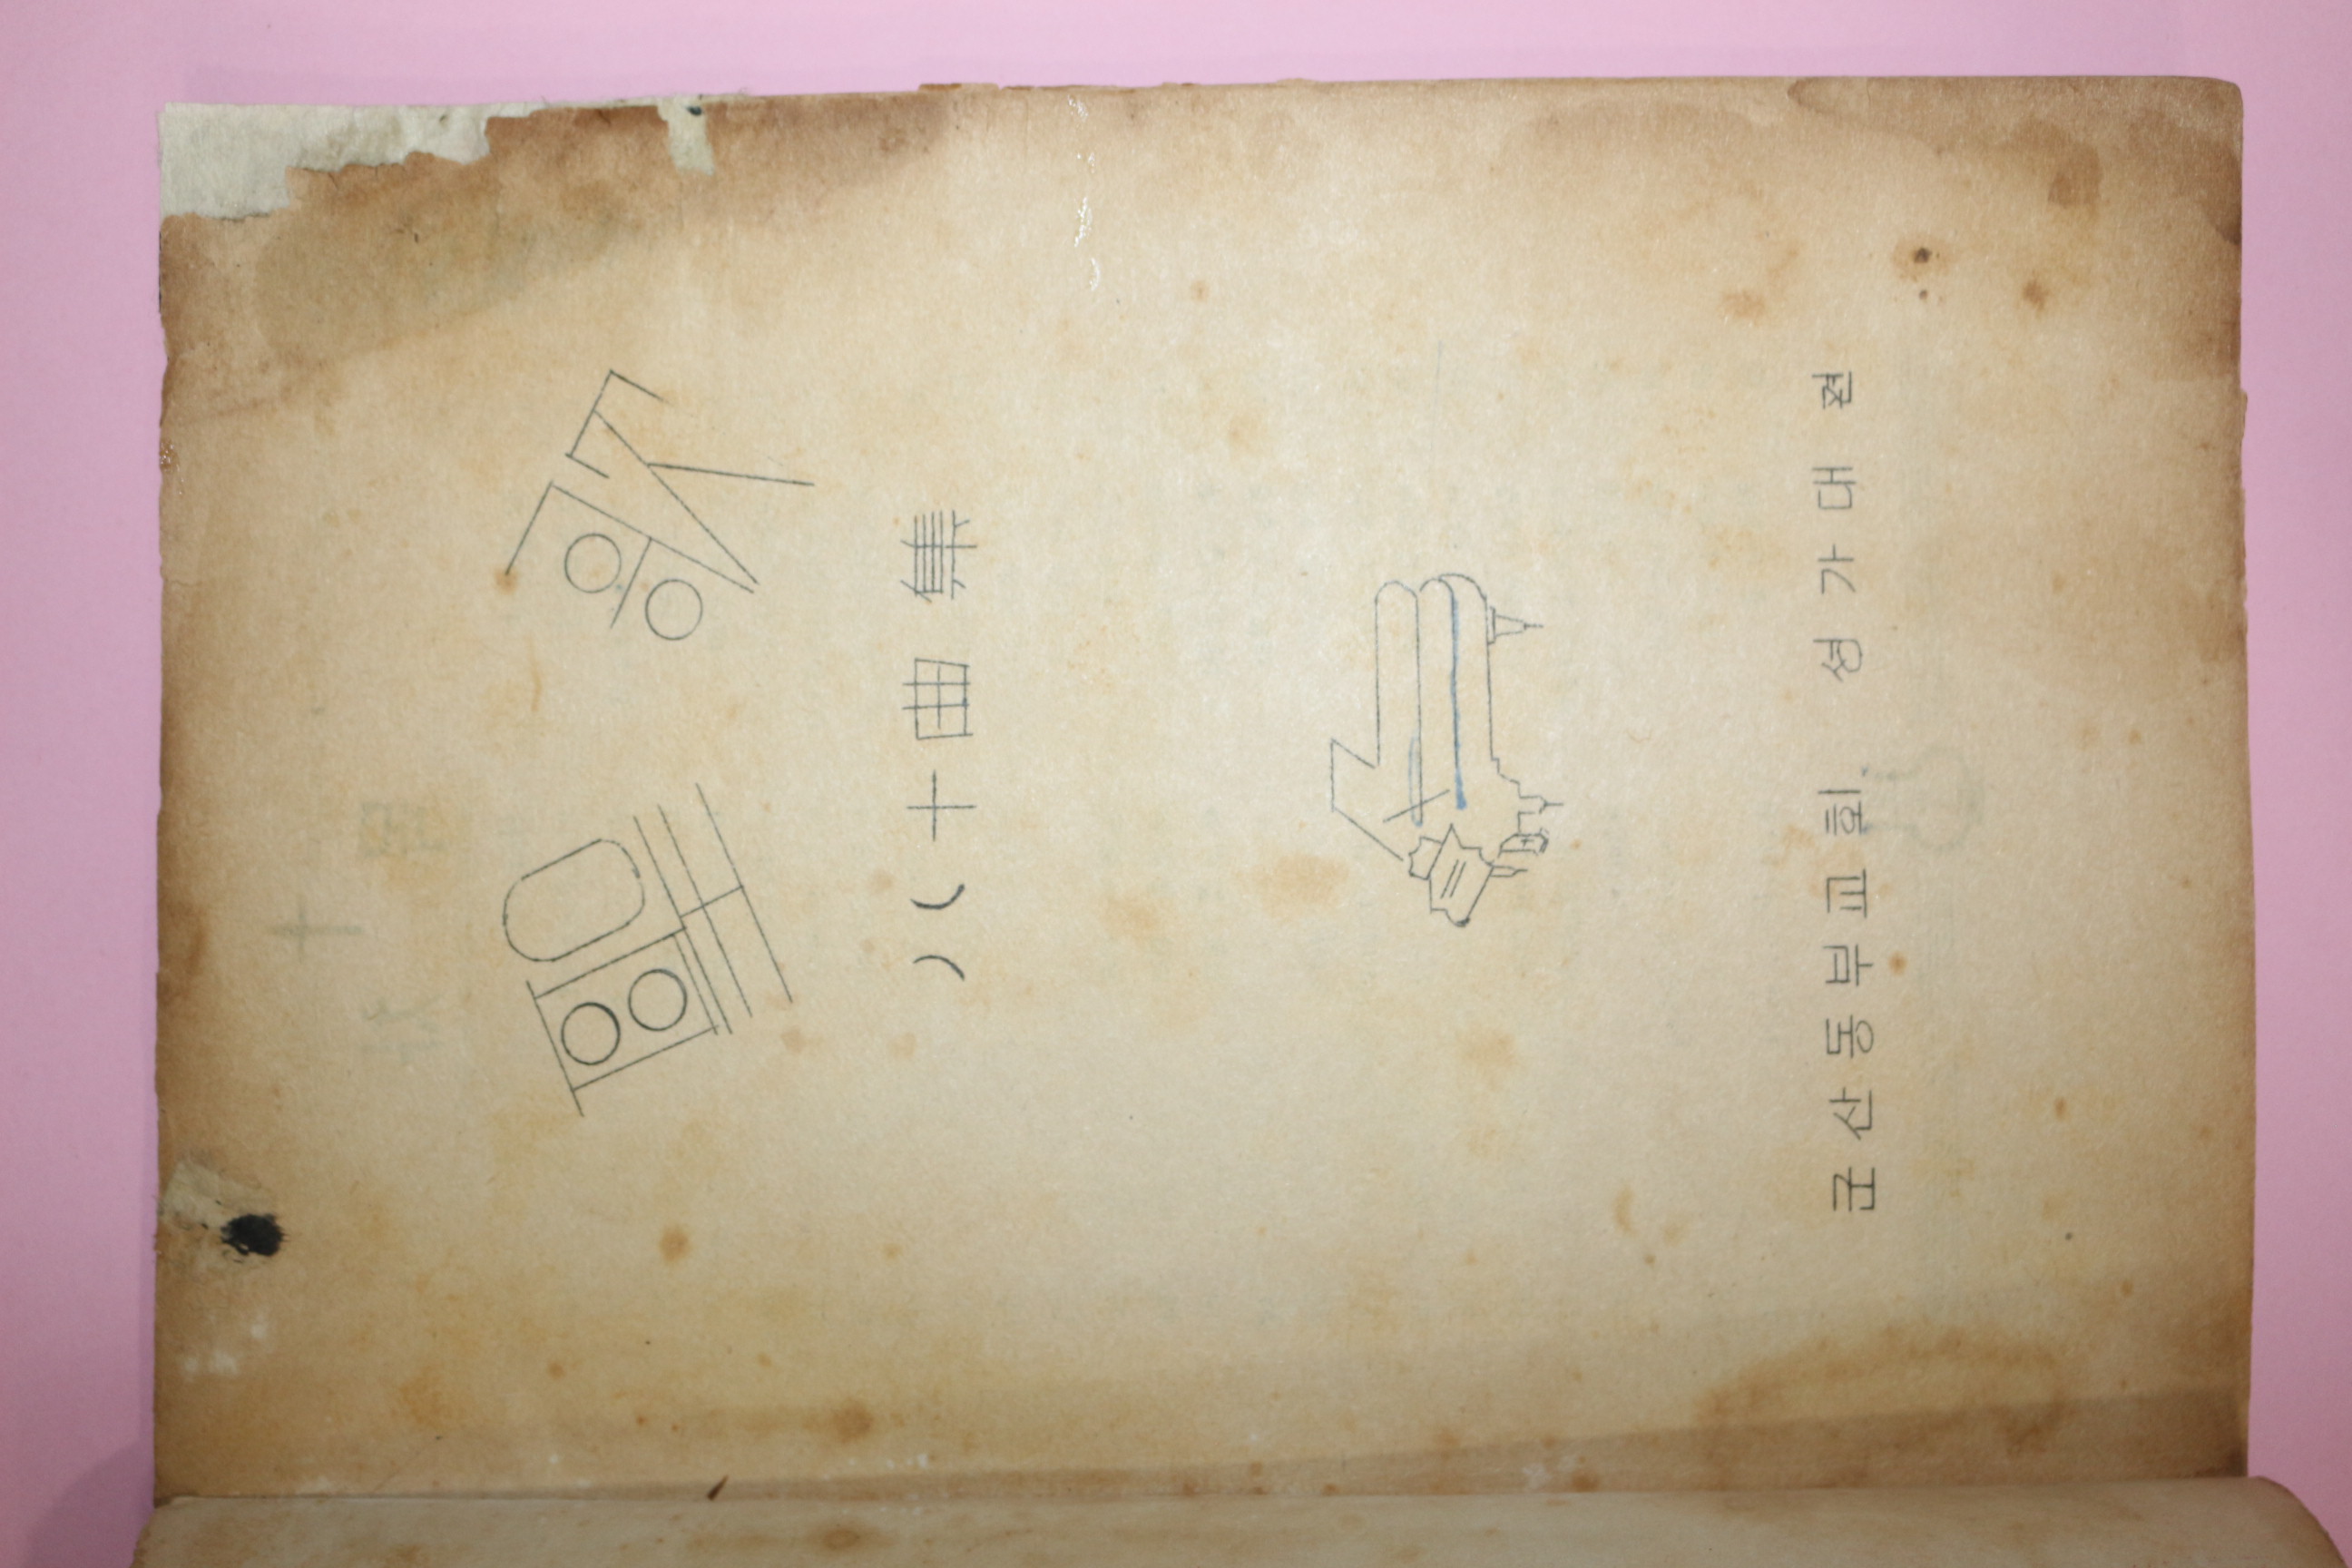 聖歌
八十曲集
군산동부교회 성가대 편